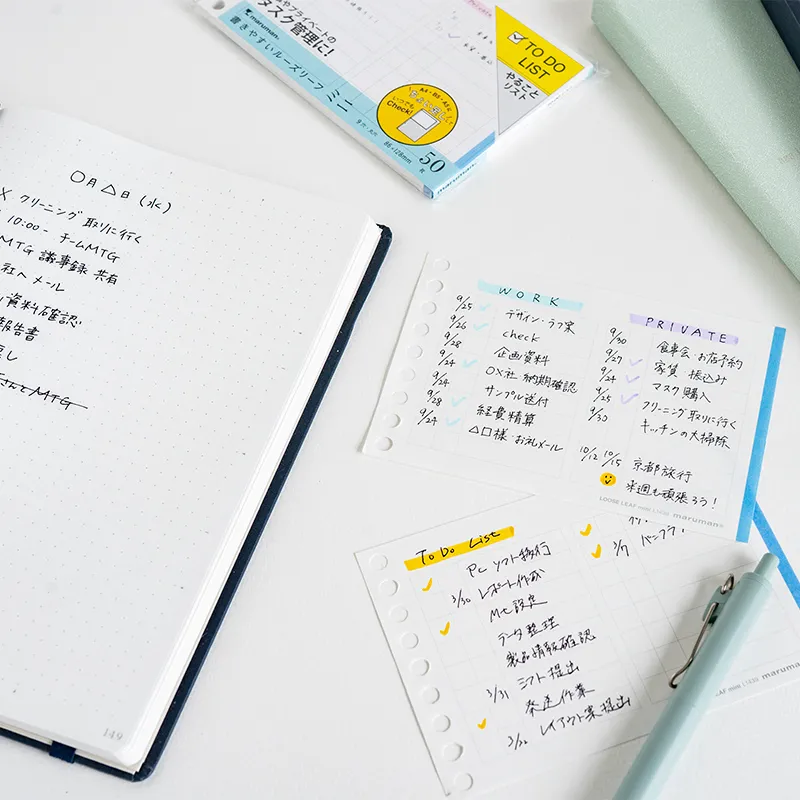 やプライベートの
タスク管理に!
maruman®
書きやすいルーズリーフ ミニ
TO DO
LIST
やること
リスト
A4・B5・A5に
いつでも
Check!
86×128mm
50
枚
maruman.
〇月△日(水)
クリーニング 取りに行く
10:00- チームMTG
MTG 議事録 共有
社へメール
資料確認
報告書
さんとMTG
149
WORK
9/25 デザイン・ラフ案
9/26 check
9/28 企画資料
9/24 OX社 納期確認
9/24 サンプル送付
9/28 経費精算
9/24 △口様・お礼メール
PRIVATE
9/30 食事会・お店予約
9/27 家賃 振込み
9/24 マスク購入
9/25 クリーニング取りに行く
9/30 キッチンの大掃除
10/12 10/15 京都旅行
来週も頑張ろう!
LOOSE LEAF mini L1438 maruman®
To Do List
PC ソフト移行
3/30 レポート作成
Mt設定
データ整理
製品情報確認
3/31 シフト提出
発送作業
3/32 レイアウト案提出
3/7
LEAF mini L1438 maruman